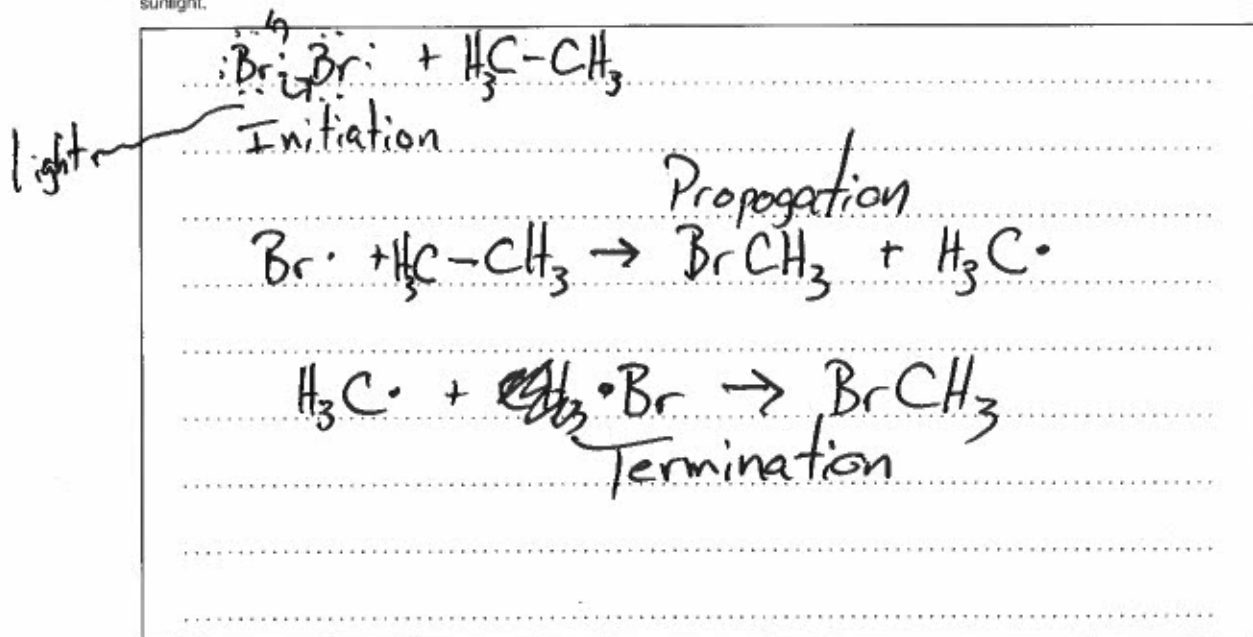 sunlight.
:Br:Br: + H₃C-CH₃
light
Initiation
Propogation
Br· + H₃C-CH₃ → BrCH₃ + H₃C·
H₃C· + ·Br → BrCH₃
Termination